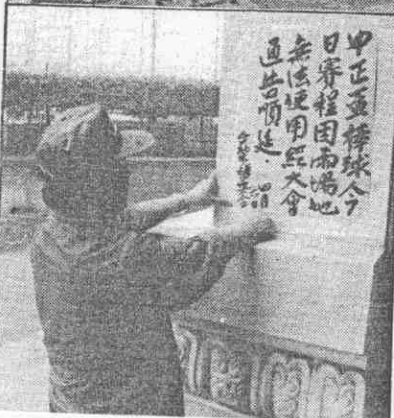 中正盃棒球今
日賽程因雨場地
無法使用經大會
通告順延